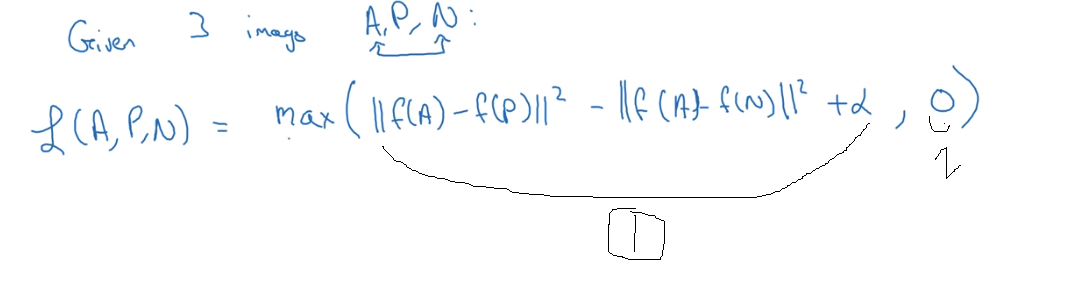 Given 3 images A, P, N :
L(A, P, N) = max(||f(A) - f(P)||² - ||f(A) - f(N)||² + α , 0)
1
2